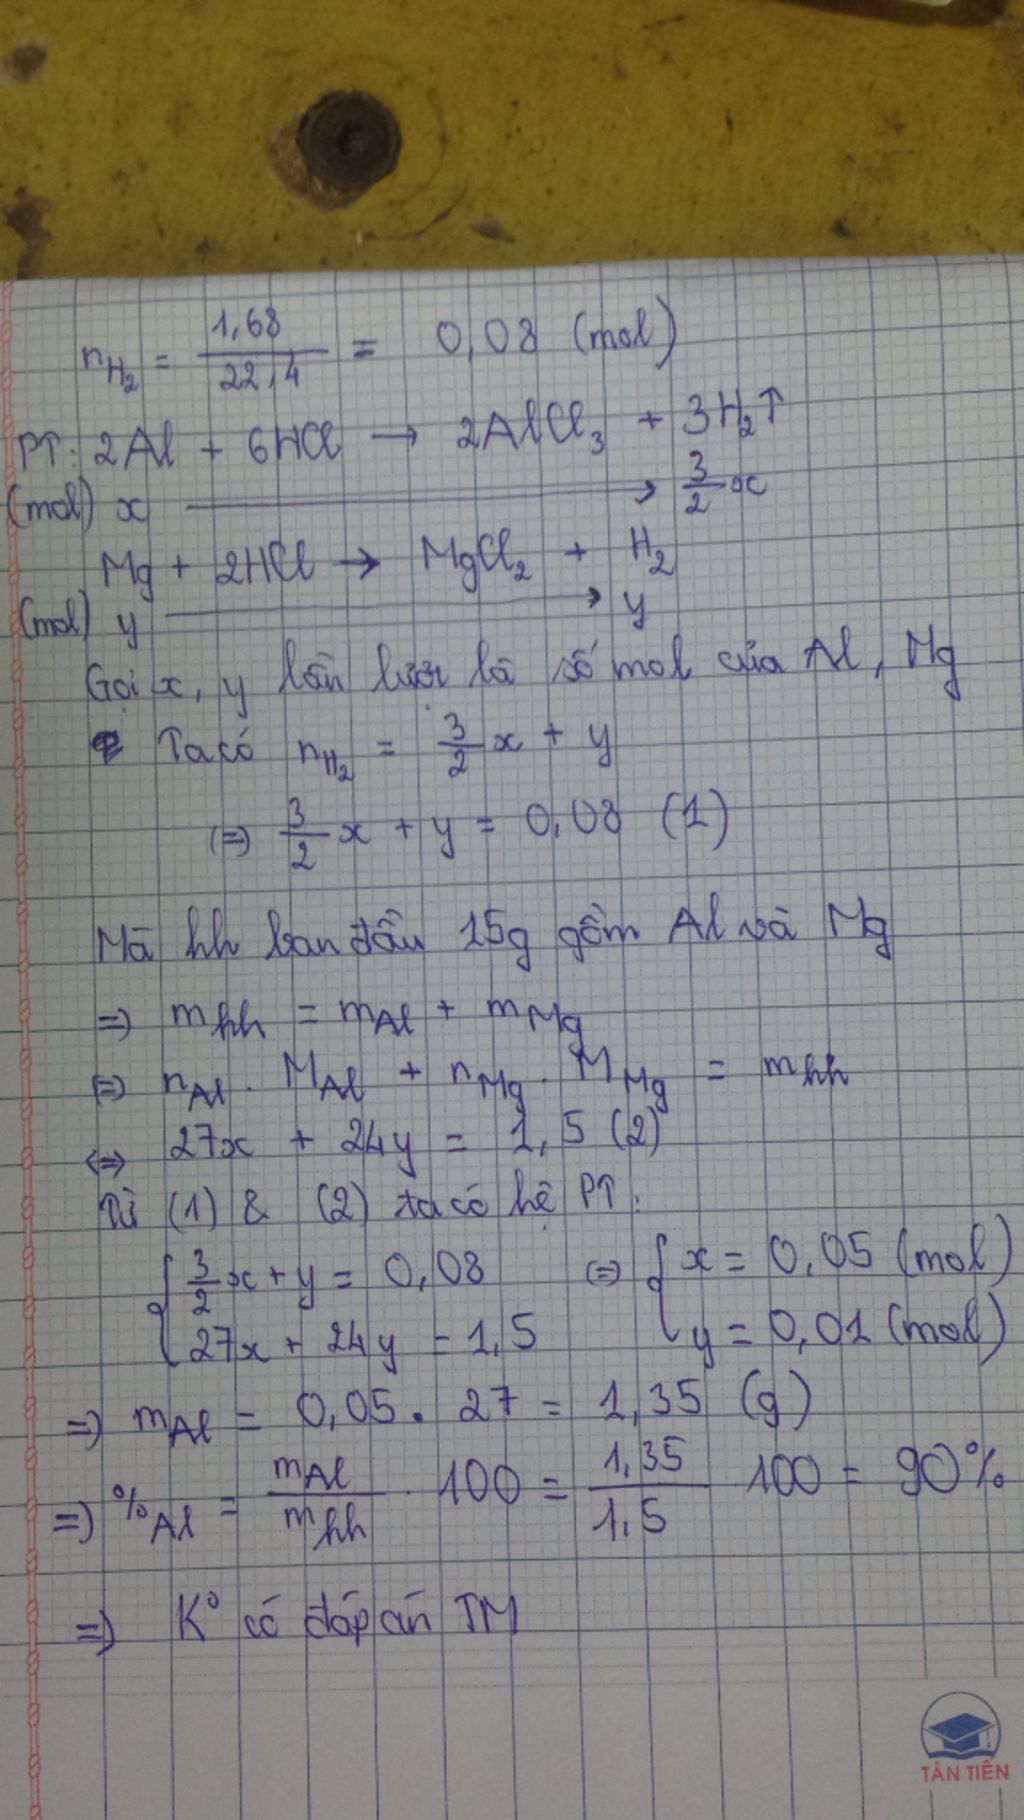 nH₂ = 1,68/22,4 = 0,08 (mol)
PT: 2Al + 6HCl → 2AlCl₃ + 3H₂↑
(mol) x → 3/2 x
Mg + 2HCl → MgCl₂ + H₂
(mol) y → y
Gọi x, y lần lượt là số mol của Al, Mg
Ta có nH₂ = 3/2 x + y
(=) 3/2 x + y = 0,08 (1)
Mà hh ban đầu 15g gồm Al và Mg
=) mhh = mAl + mMg
(=) nAl . MAl + nMg . MMg = mhh
<=> 27x + 24y = 1,5 (2)
Từ (1) & (2) ta có hệ PT:
{ 3/2 x + y = 0,08 (=) { x = 0,05 (mol)
27x + 24y = 1,5 y = 0,01 (mol)
=) mAl = 0,05 . 27 = 1,35 (g)
=) %Al = mAl/mhh . 100 = 1,35/1,5 100 = 90%
=) K° có đáp án TM
TÂN TIẾN